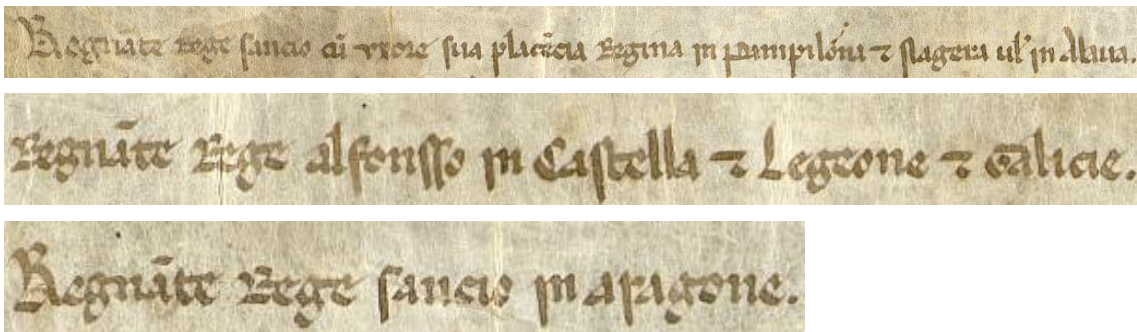 Regnāte rege sancio cū vxore sua placēcia Regina in Pampilōia ⁊ Nagera uł in Alaua.
Regnāte Rege alfonsso in Castella ⁊ Legeone ⁊ Galicie.
Regnāte Rege sancio in aragone.